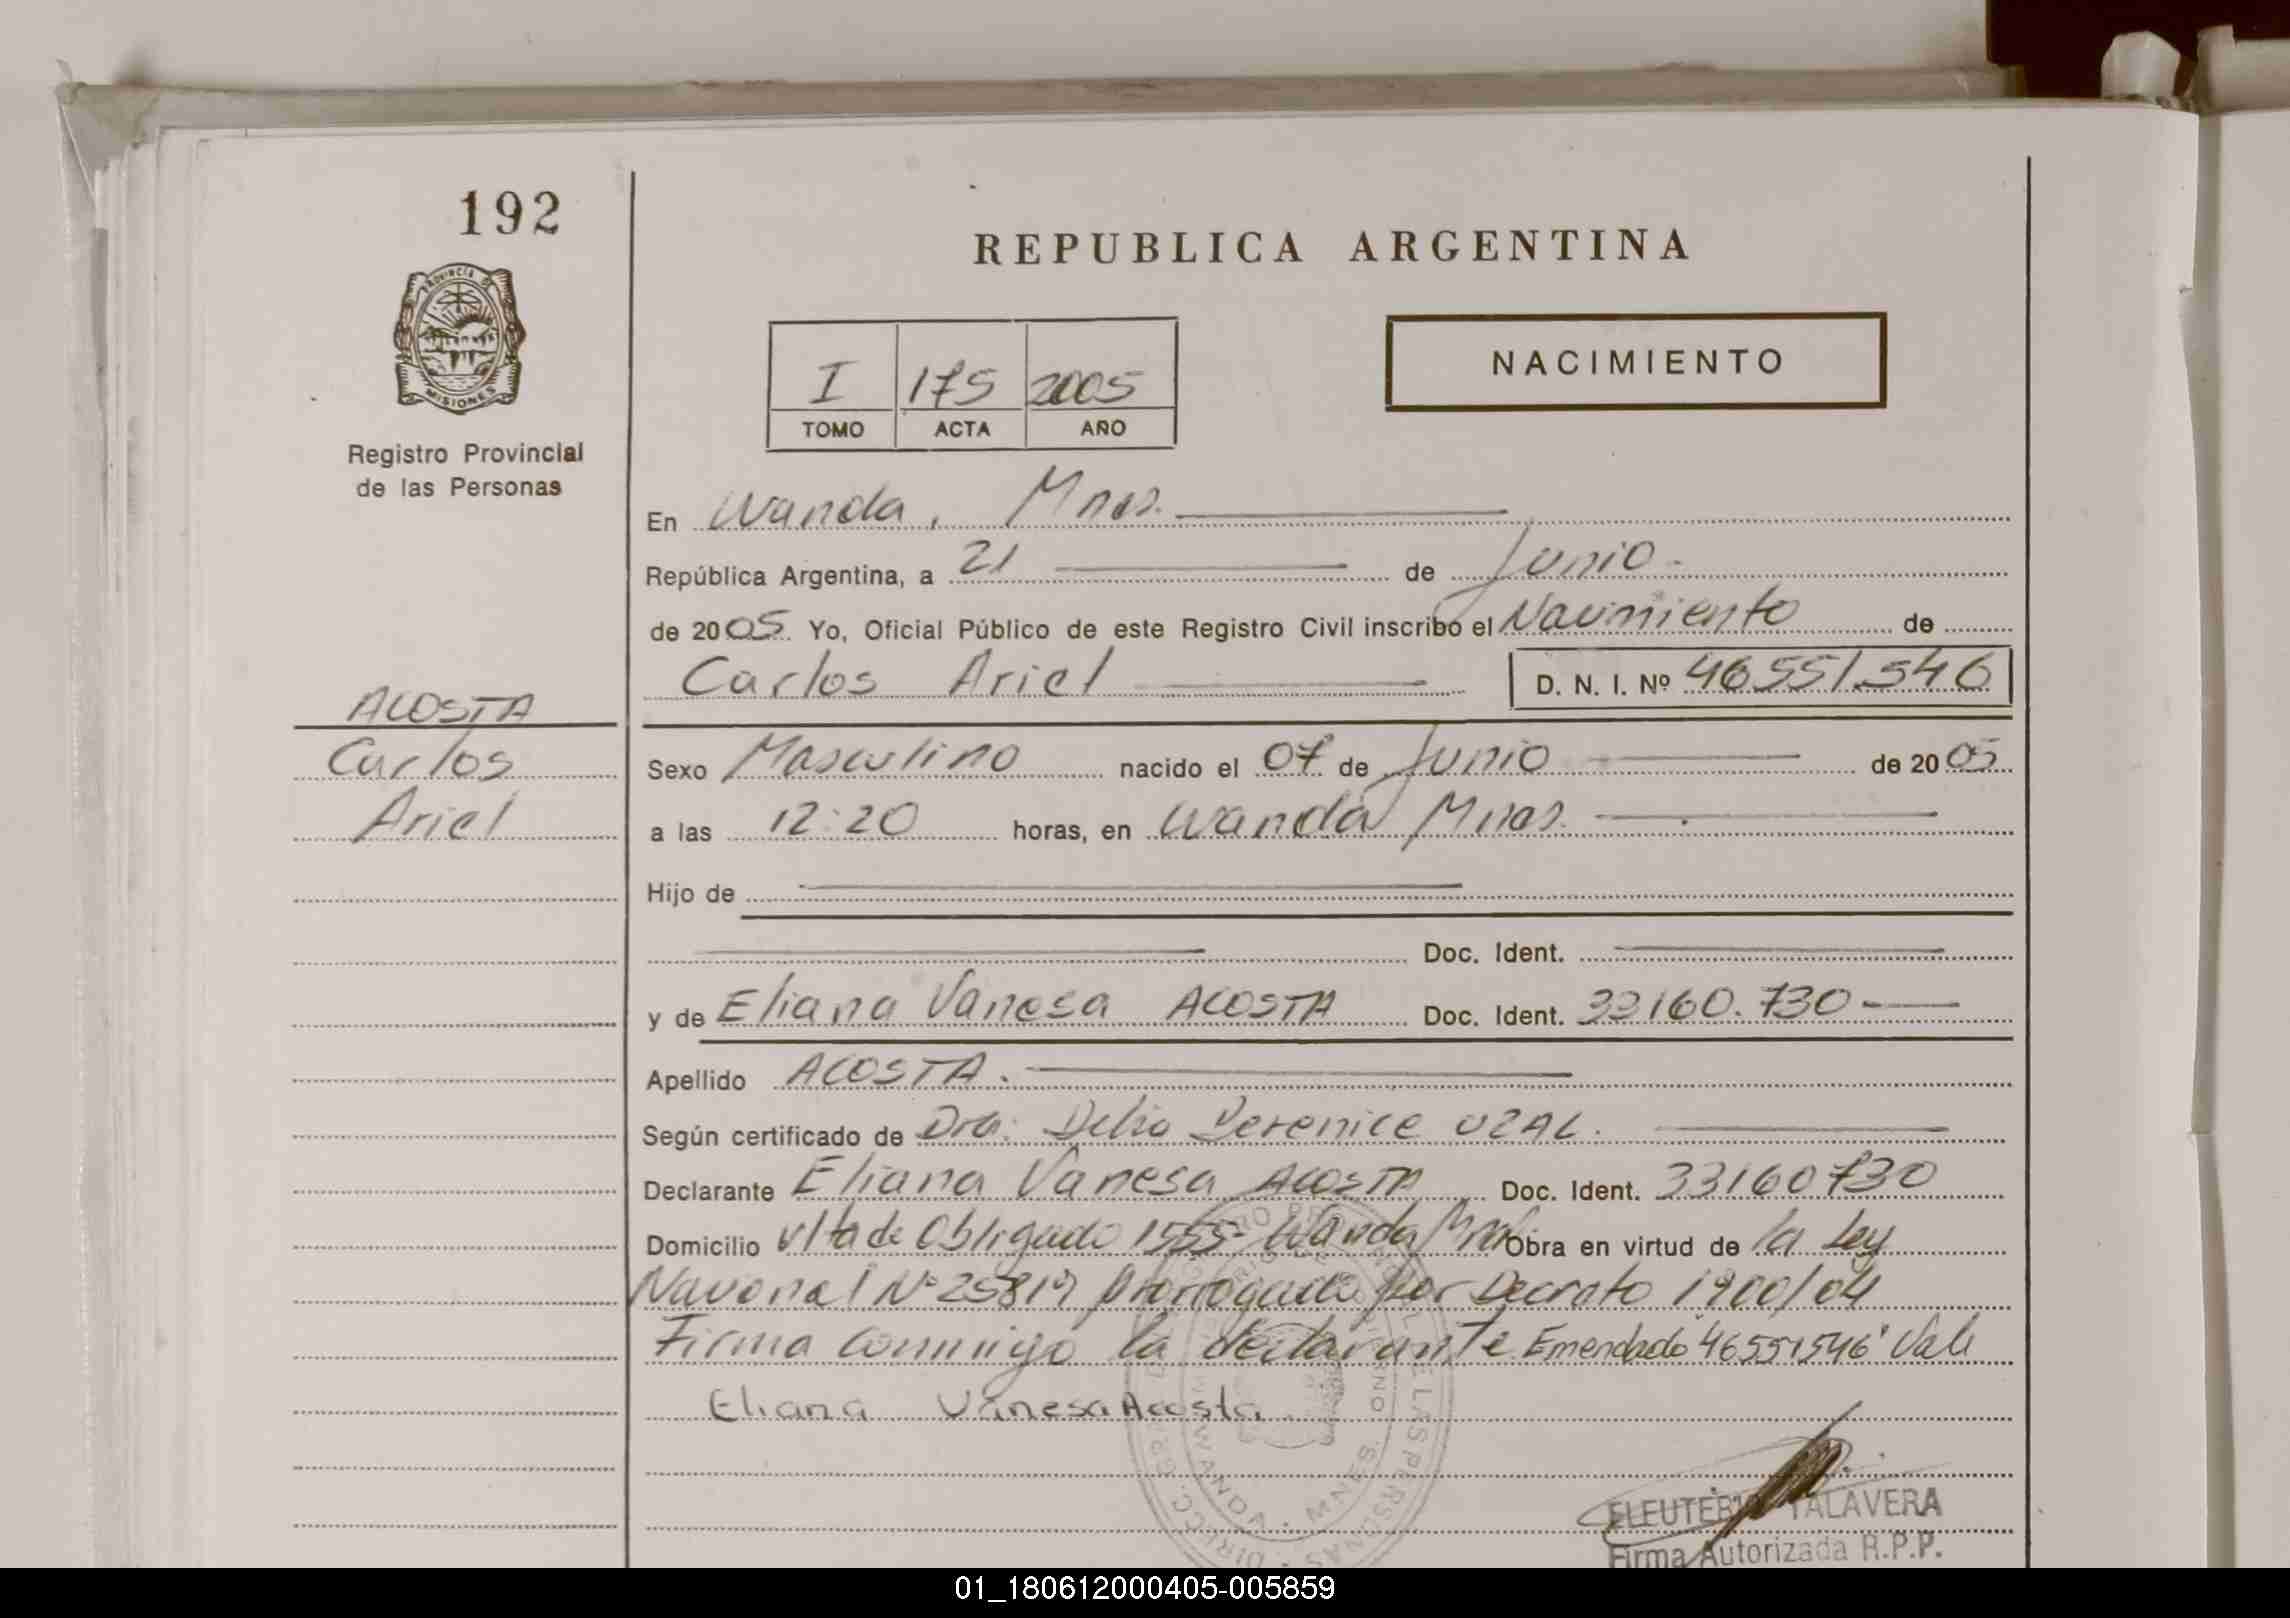 192
PROVINCIA DE
MISIONES
Registro Provincial
de las Personas
REPUBLICA ARGENTINA
I 175 2005
TOMO ACTA AÑO
NACIMIENTO
En Wanda, Mnes.
República Argentina, a 21 de Junio.
de 2005. Yo, Oficial Público de este Registro Civil inscribo el Nacimiento de
Carlos Ariel D. N. I. Nº 46551.546
ACOSTA
Carlos
Ariel
Sexo Masculino nacido el 07 de Junio de 2005
a las 12:20 horas, en Wanda Mnes.
Hijo de
Doc. Ident.
y de Eliana Vanesa ACOSTA Doc. Ident. 33160.730-
Apellido ACOSTA.
Según certificado de Dra: Delia Berenice UZAL.
Declarante Eliana Vanesa ACOSTA Doc. Ident. 33160730
Domicilio Vlta de Obligado 1555- Wanda Obra en virtud de la Ley
Nacional Nº 25819 prorrogada por Decreto 1900/04
Firma conmigo la declarante. Emendado "46551546" Vale
Eliana Vanesa Acosta
ELEUTERIO TALAVERA
Firma Autorizada R.P.P.
WANDA - MNES.
01_180612000405-005859